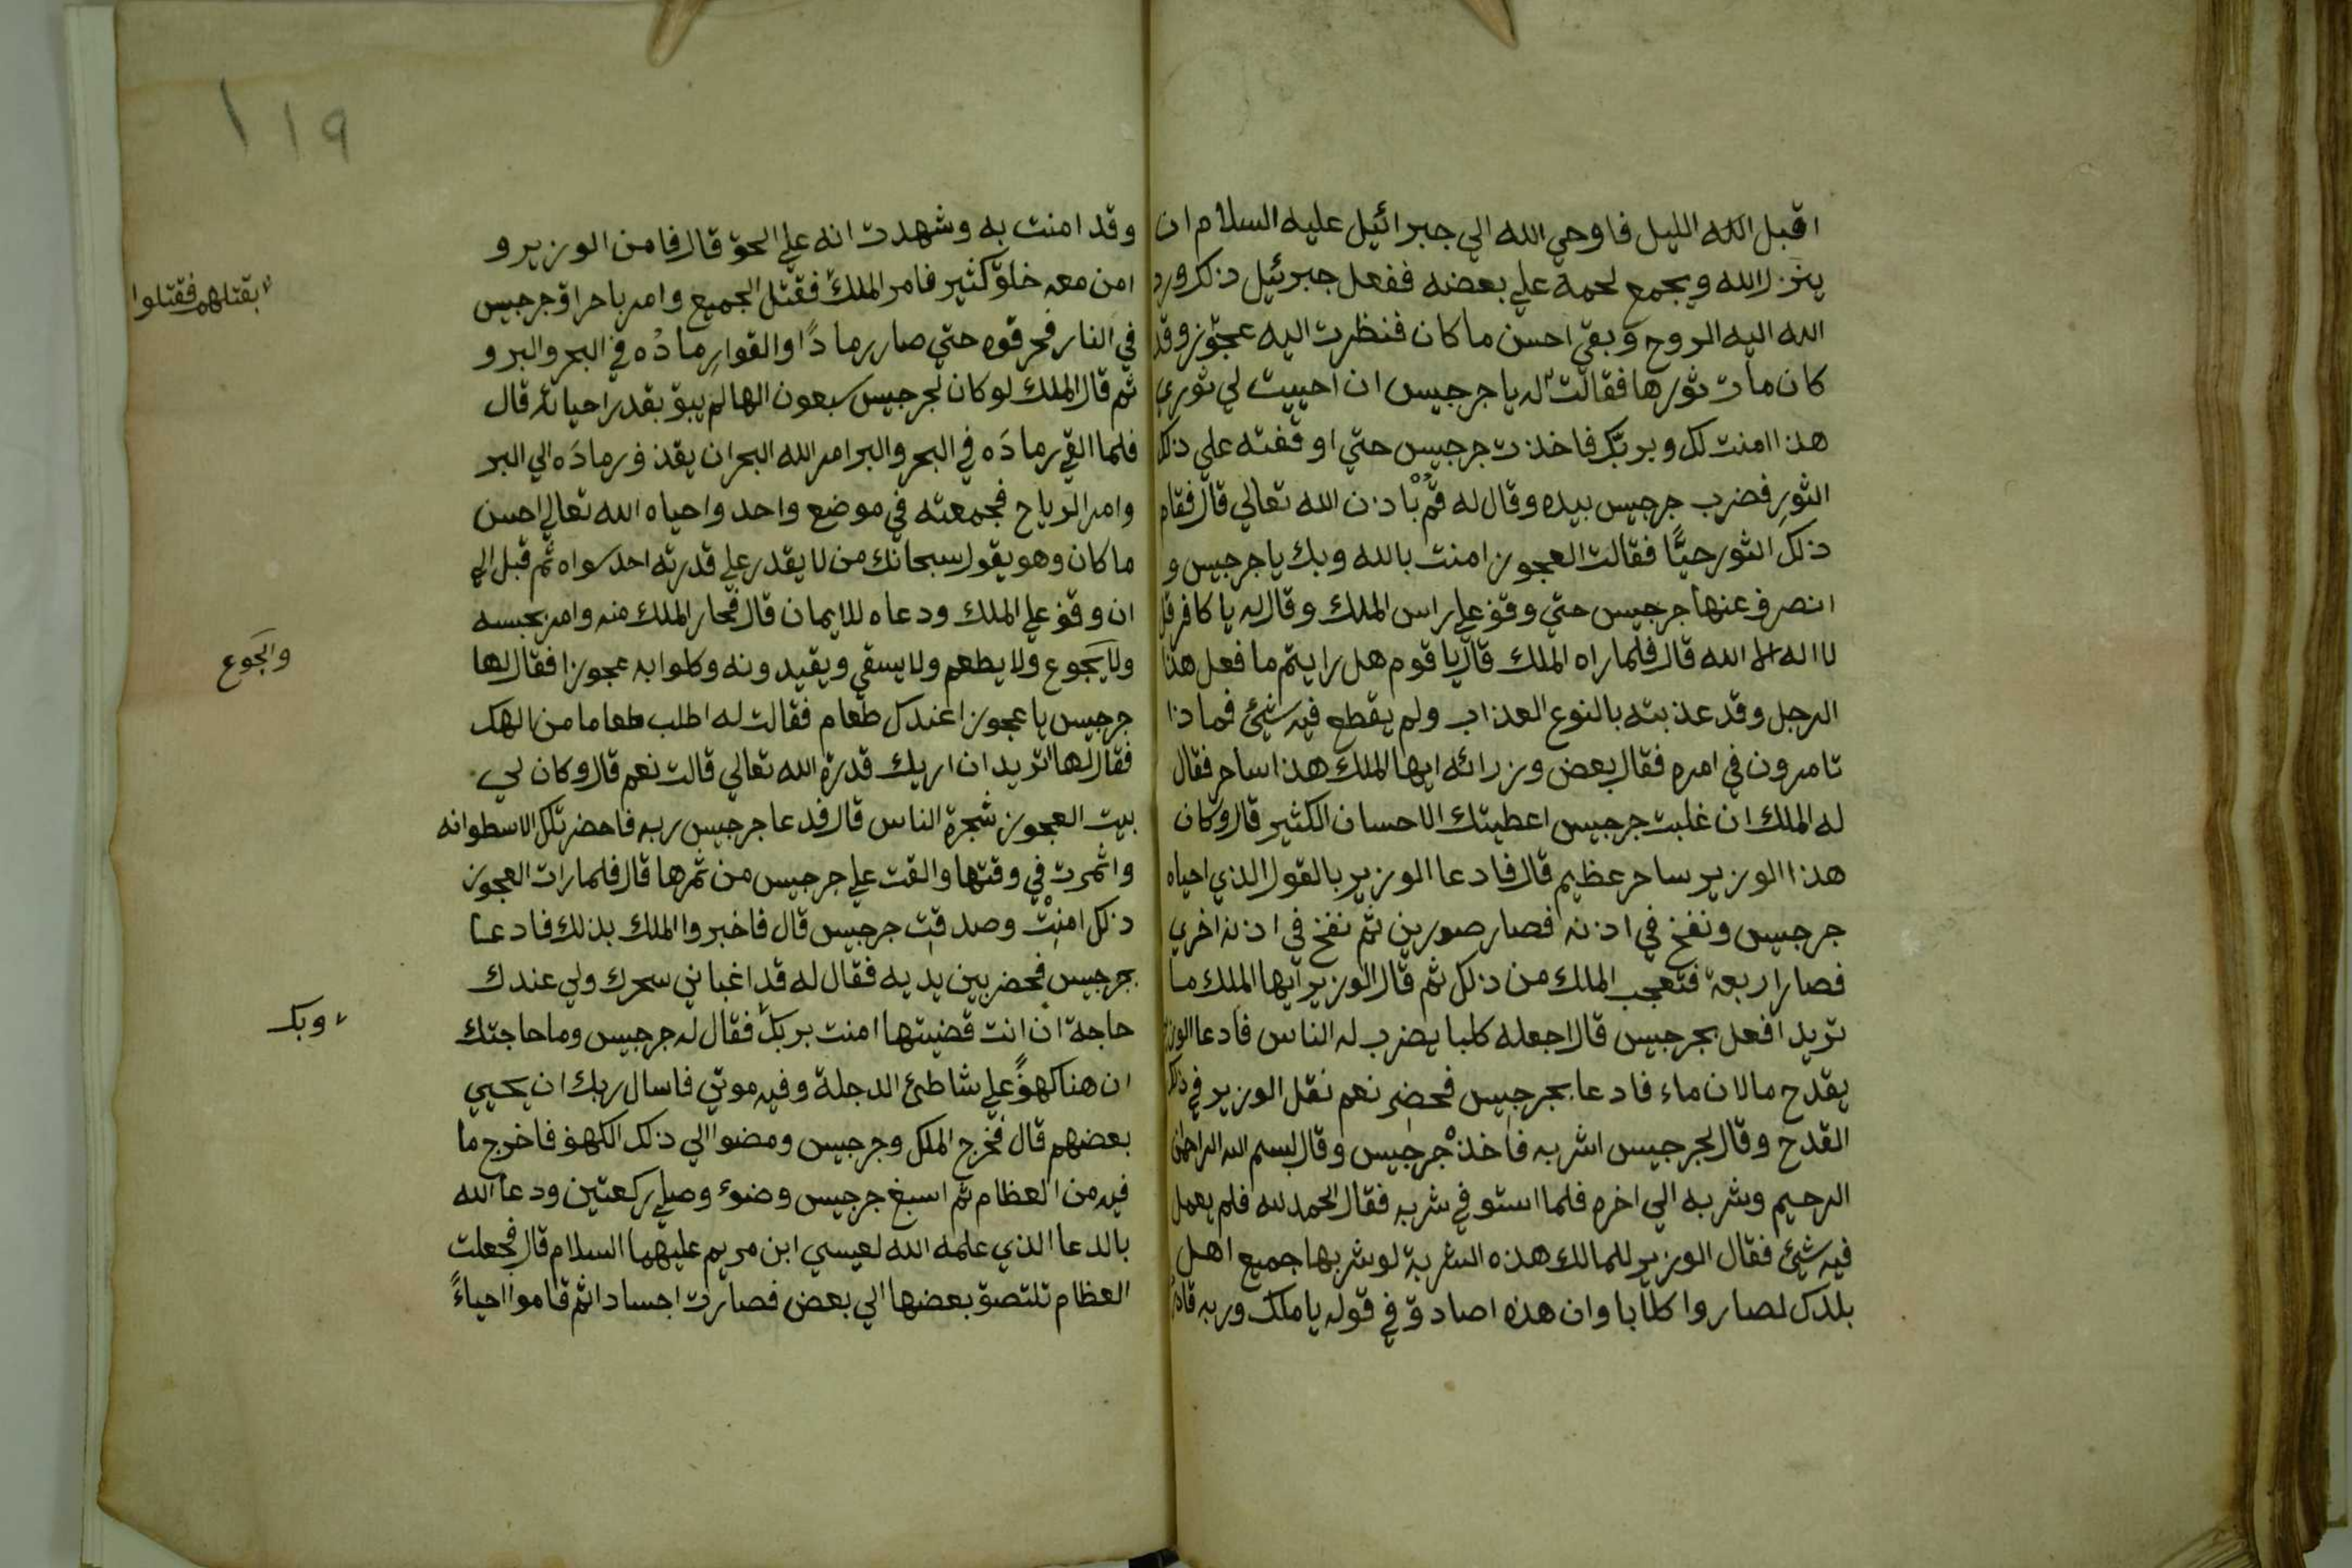 اقبل الله الليل فاوحي الله الي جبرائيل عليه السلام ان
ينزل الله ويجمع لحمه علي بعضه ففعل جبرئيل ذلك ورد
الله اليه الروح وبقي احسن ما كان فنظرت اليه عجوز وقد
كان مات ثورها فقالت له يا جرجيس ان احييت لي ثوري
هذا امنت لك وبربك فاخذت جرجيس حتي اوقفته علي ذلك
الثور فضرب جرجيس بيده وقال له قم باذن الله تعالي قال فقام
ذلك الثور حيًّا فقالت العجوز امنت بالله وبك يا جرجيس و
انصرف عنها جرجيس حتي وقف علي راس الملك وقال له يا كافر قل
لا اله الا الله قال فلما راه الملك قال يا قوم هل رايتم ما فعل هذا
الرجل وقد عذبته بالنوع العذاب ولم يقطع فيه شيئ فماذا
تامرون في امره فقال بعض وزرائه ايها الملك هذا ساحر فقال
له الملك ان غلبت جرجيس اعطيتك الاحسان الكثير قال وكان
هذا الوزير ساحر عظيم قال فادعا الوزير بالقول الذي احياه
جرجيس ونفخ في اذنه فصار صورين ثم نفخ في اذنه اخري
فصار اربعة فتعجب الملك من ذلك ثم قال الوزير ايها الملك ما
تريد افعل بجرجيس قال اجعله كلبا يضرب له الناس فادعا الوزير
بقدح مالان ماء فادعا بجرجيس فحضر نعم نقل الوزير في ذلك
القدح وقال لجرجيس اشربه فاخذ جرجيس وقال بسم الله الرحمن
الرحيم وشربه الي اخره فلما استوفي شربه فقال الحمد لله فلم يعمل
فيه شيئ فقال الوزير للمالك هذه الشربة لو شربها جميع اهل
بلدك لصاروا كلابا وان هذه اصادق في قوله يا ملك وربه قادر
١١٩
وقد امنت به وشهدت انه علي الحق قال فامن الوزير و
امن معه خلق كثير فامر الملك فقتل الجميع وامر باحراق جرجيس
بقتلهم فقتلوا
في النار فحرقوه حتي صار رمادًا والقوا رماده في البحر والبر و
ثم قال الملك لو كان لجرجيس سبعون الها لم يبق بقدر احيائه قال
فلما القي رماده في البحر والبر امر الله البحر ان يقذف رماده الي البر
وامر الرياح فجمعته في موضع واحد واحياه الله تعالي احسن
ما كان وهو يقول سبحانك من لا يقدر علي قدرته احد سواه ثم قبل الي
ان وقف علي الملك ودعاه للايمان قال فحار الملك منه وامر بحبسه
ولا يجوع ولا يطعم ولا يسقي ويقيدونه وكلوا به عجوزا فقال لها
وانجوع
جرجيس يا عجوز اعندك طعام فقالت له اطلب طعاما من الهك
فقال لها اتريد ان اريك قدرة الله تعالي قالت نعم قال وكان لي
بيت العجوز شجرة الناس قال فدعا جرجيس ربه فاحضر تلك الاسطوانه
واثمرت في وقتها والقت علي جرجيس من ثمرها قال فلما رات العجوز
ذلك امنت وصدقت جرجيس قال فاخبروا الملك بذلك فادعا
بجرجيس فحضر بين يديه فقال له قد اغباني سحرك ولي عندك
حاجة ان انت قضيتها امنت بربك فقال له جرجيس وما حاجتك
وبك
ان هنا كهفً علي شاطئ الدجلة وفيه موتي فاسال ربك ان يحيي
بعضهم قال فخرج الملك وجرجيس ومضوا الي ذلك الكهف فاخرج ما
فيه من العظام ثم اسبغ جرجيس وضوء وصلي ركعتين ودعا الله
بالدعا الذي علمه الله لعيسي ابن مريم عليهما السلام قال فجعلت
العظام تلتصق بعضها الي بعض فصارت اجسادا ثم قاموا احياءً